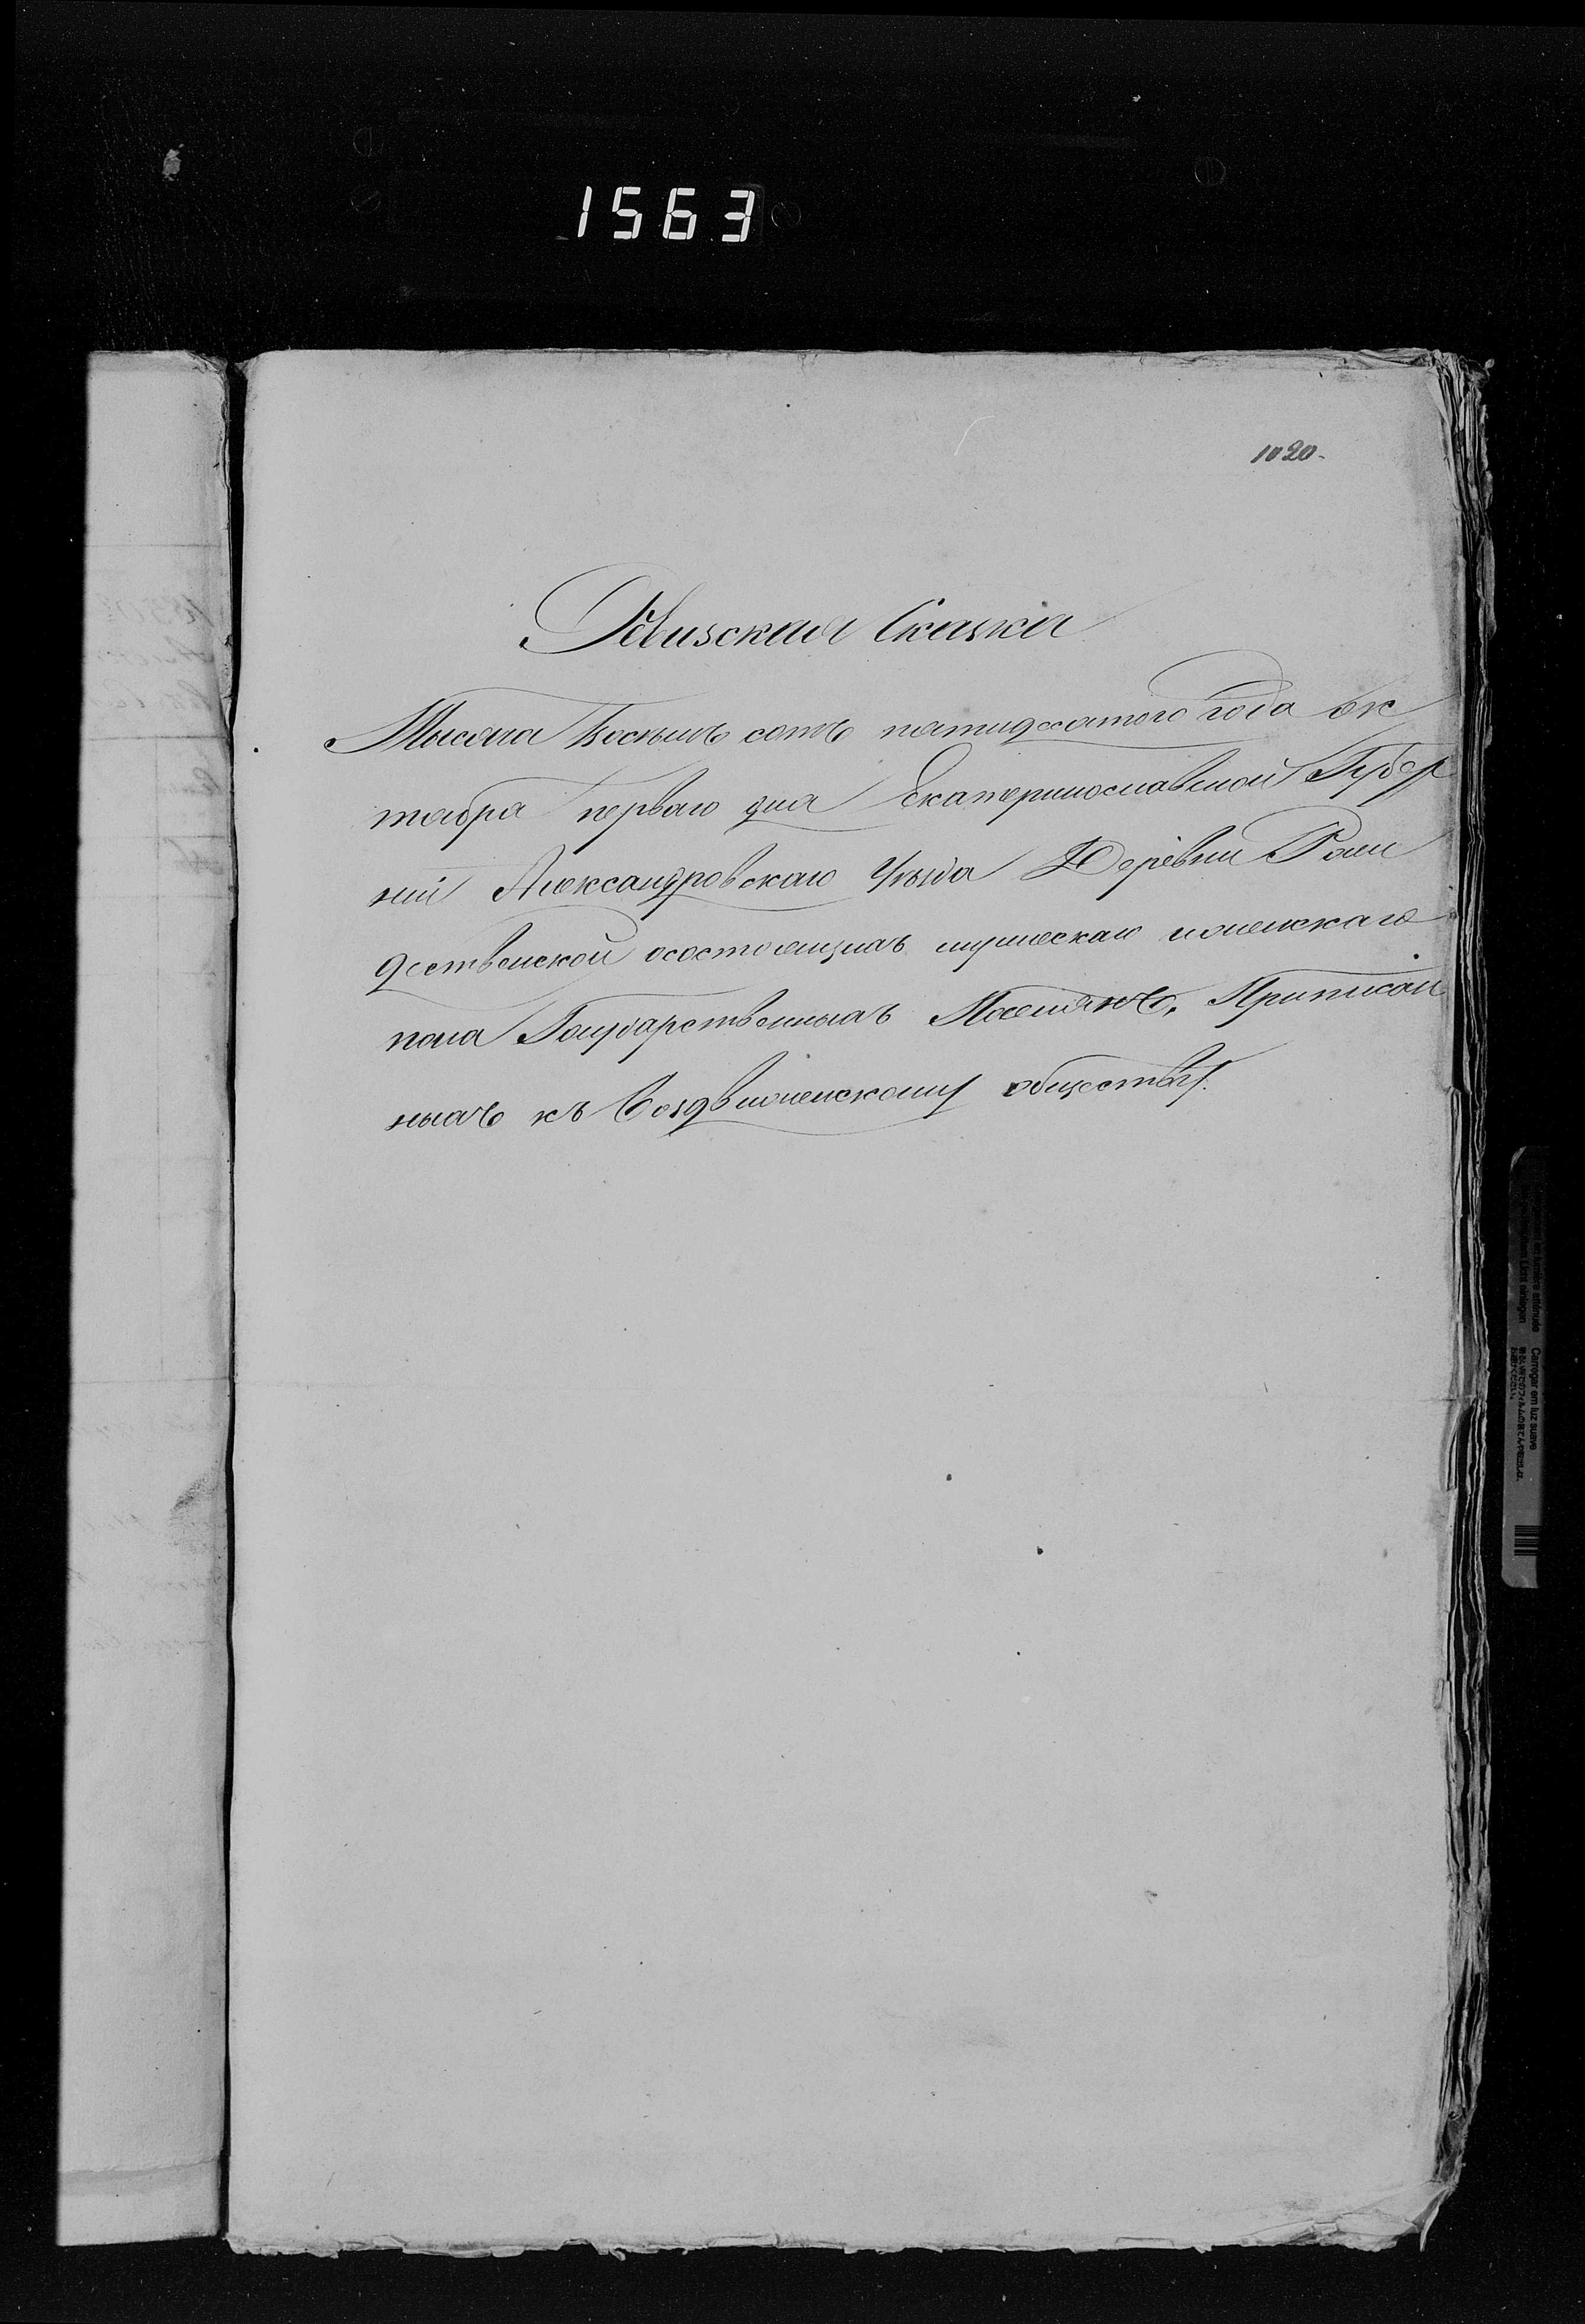 1563
1020.
Ревизская Сказка
Тысяча Восемь сотъ пятидесятого года ок
тября перваго дня Екатеринославской Губер
ніи Александровскаго Уѣзда Деревни Рож
дественской осостоящихъ мужескаго иженскаго
пола Государственныхъ Поселянъ, Приписан
ныхъ къ Воздвиженскому обществу.
Carregar em luz suave